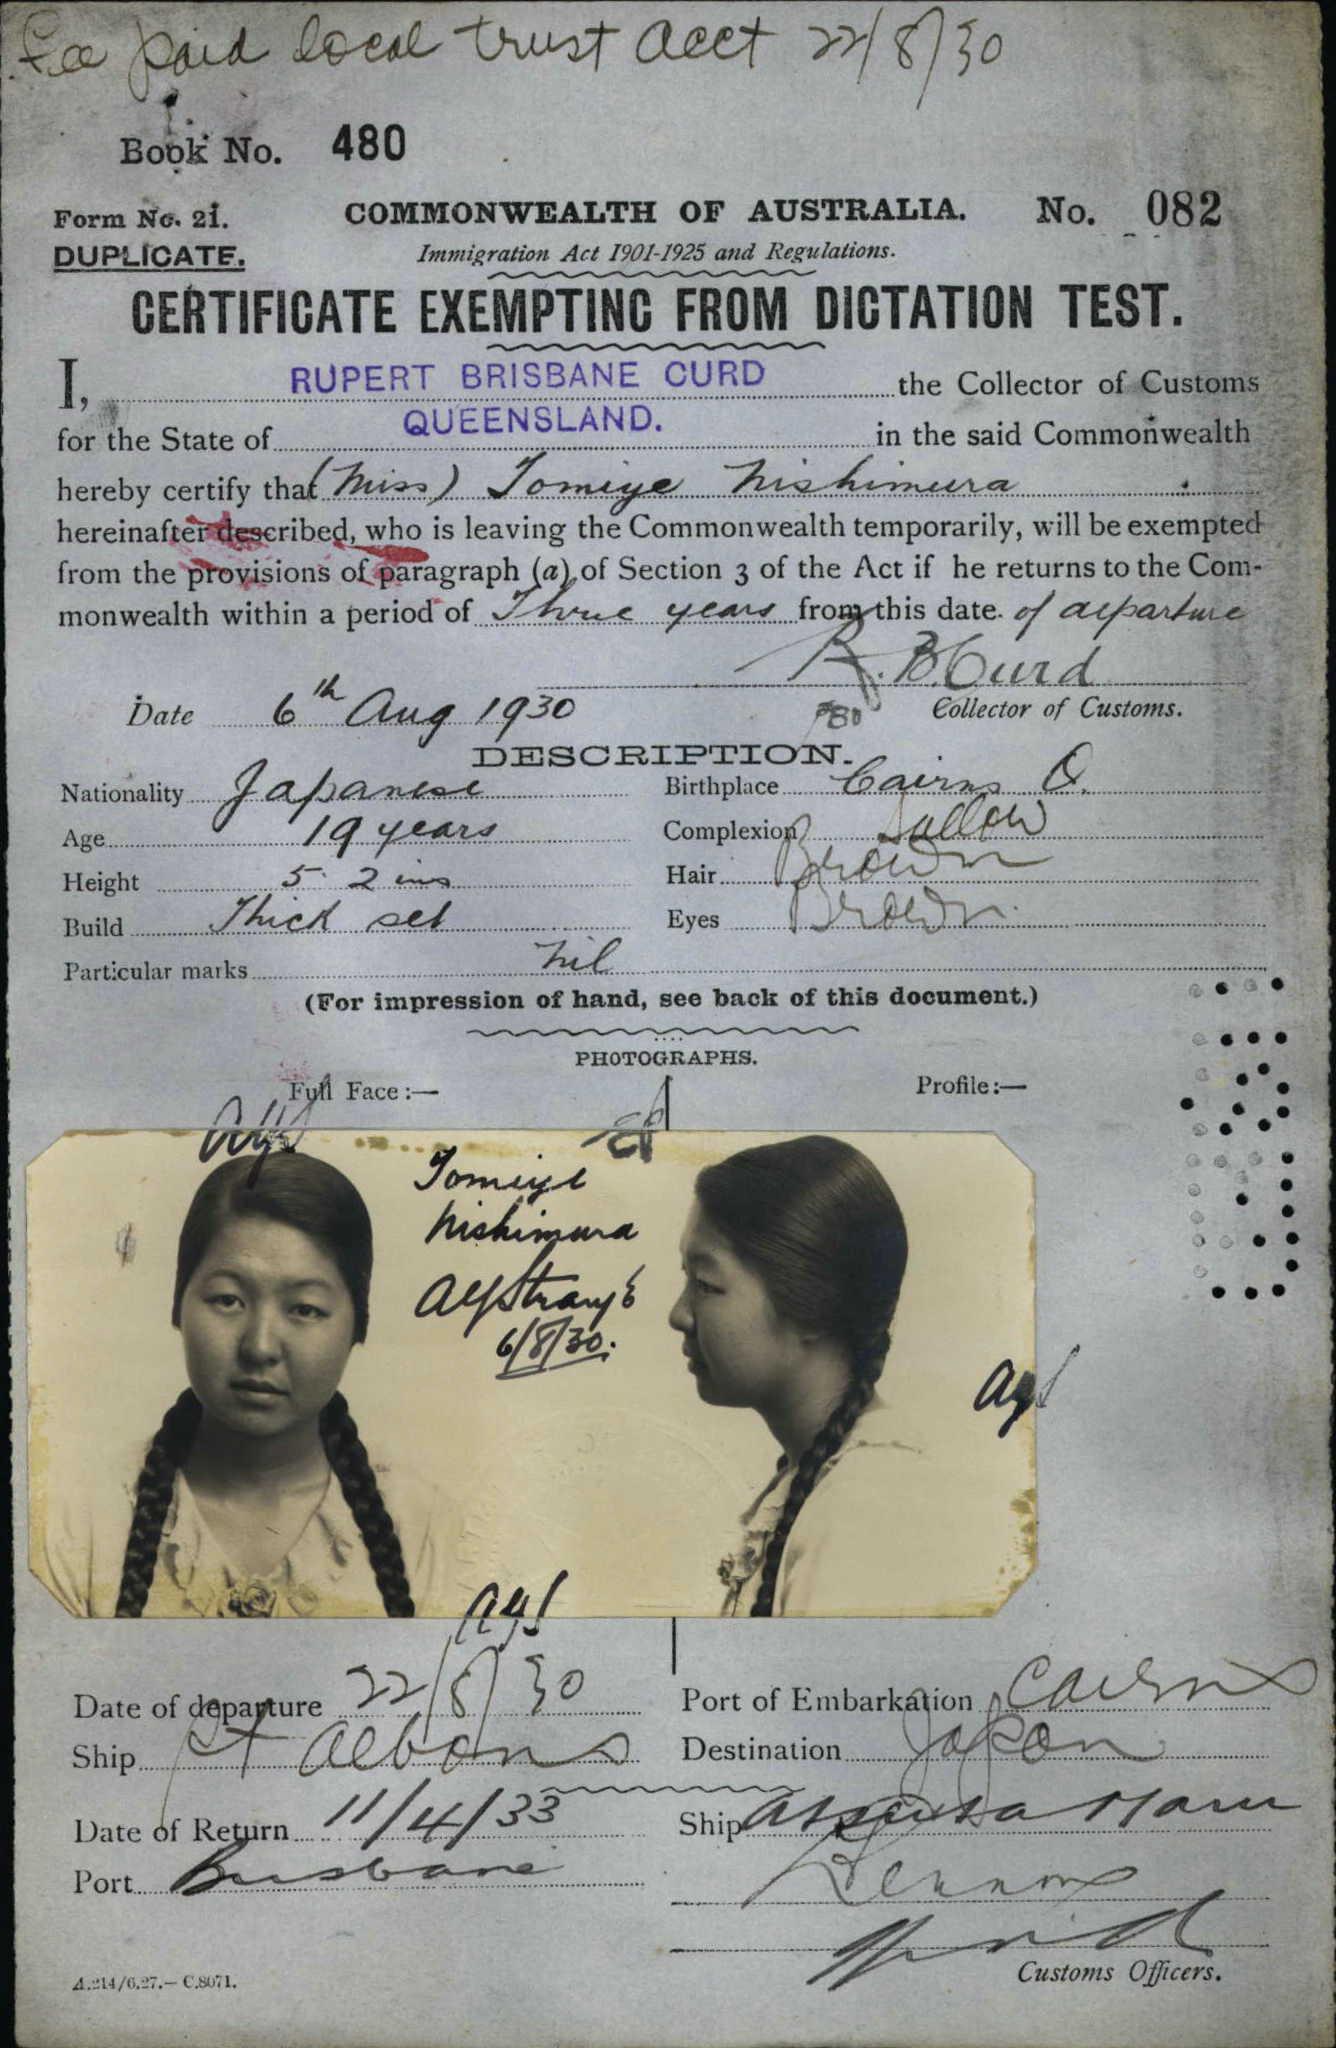 Fee paid local trust acct 22/8/30
Book No. 480
Form No. 21. COMMONWEALTH OF AUSTRALIA. No. 082
DUPLICATE. Immigration Act 1901-1925 and Regulations.
CERTIFICATE EXEMPTING FROM DICTATION TEST.
I, RUPERT BRISBANE CURD the Collector of Customs
for the State of QUEENSLAND. in the said Commonwealth
hereby certify that (Miss) Tomiye Nishimura
hereinafter described, who is leaving the Commonwealth temporarily, will be exempted
from the provisions of paragraph (a) of Section 3 of the Act if he returns to the Com-
monwealth within a period of Three years from this date of departure
R. B. Curd
Date 6th Aug 1930 Collector of Customs.
DESCRIPTION.
Nationality Japanese Birthplace Cairns Q.
Age 19 years Complexion Sallow
Height 5. 2 ins Hair Brown
Build Thick set Eyes Brown
Particular marks Nil
(For impression of hand, see back of this document.)
PHOTOGRAPHS.
Full Face:— Profile:—
Tomiye
Nishimura
6/8/30.
Date of departure 22/8/30 Port of Embarkation Cairns
Ship St Albans Destination Japan
Date of Return 11/4/33 Ship Atsuta Maru
Port Brisbane Lennox
Customs Officers.
A.214/6.27.—C.8071.